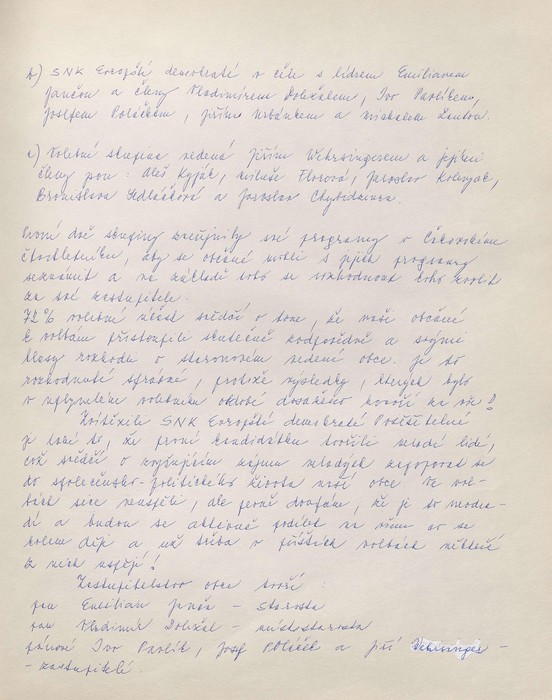 b) SNK Evropští demokraté v čele s lídrem Emilianem
Jančou a členy Vladimírem Doležalem, Ivo Pavlíkem,
Josefem Poláčkem, Jiřím Urbánkem a Michalem
c) Volební skupina vedená Jiřím Wehrsingerem a jejími
členy jsou: Aleš Kyják, Miluše Florová, Jaroslav
Bronislava Sedláčková a Jaroslav
První dvě skupiny zveřejnily své programy v
čtvrtletníku, aby se občané mohli s jejich programy
seznámit a na základě toho se rozhodnout koho zvolit
za své zastupitele.
72% volební účast svědčí o tom, že naši občané
k volbám přistoupili skutečně zodpovědně a svými
hlasy rozhodli o staronovém vedení obce. Je to
rozhodnutí správné, protože výsledky, kterých bylo
v uplynulém volebním období dosaženo hovoří za vše!
Zvítězili SNK Evropští demokraté Potěšitelné
je také to, že první kandidátku tvořili mladí lidé,
což svědčí o zvyšujícím zájmu mladých zapojovat se
do společensko-politického života naší obce Ve vol-
bách sice neuspěli, ale pevně doufám, že je to neodra-
dí a budou se aktivně podílet na všem co se
kolem děje a už třeba v příštích volbách někteří
z nich uspějí!
Zastupitelstvo obce tvoří:
pan Emilian Janča - starosta
pan Vladimír Doležal - místostarosta
pánové Ivo Pavlík, Josef Poláček a Jiří Wehrsinger -
- zastupitelé.